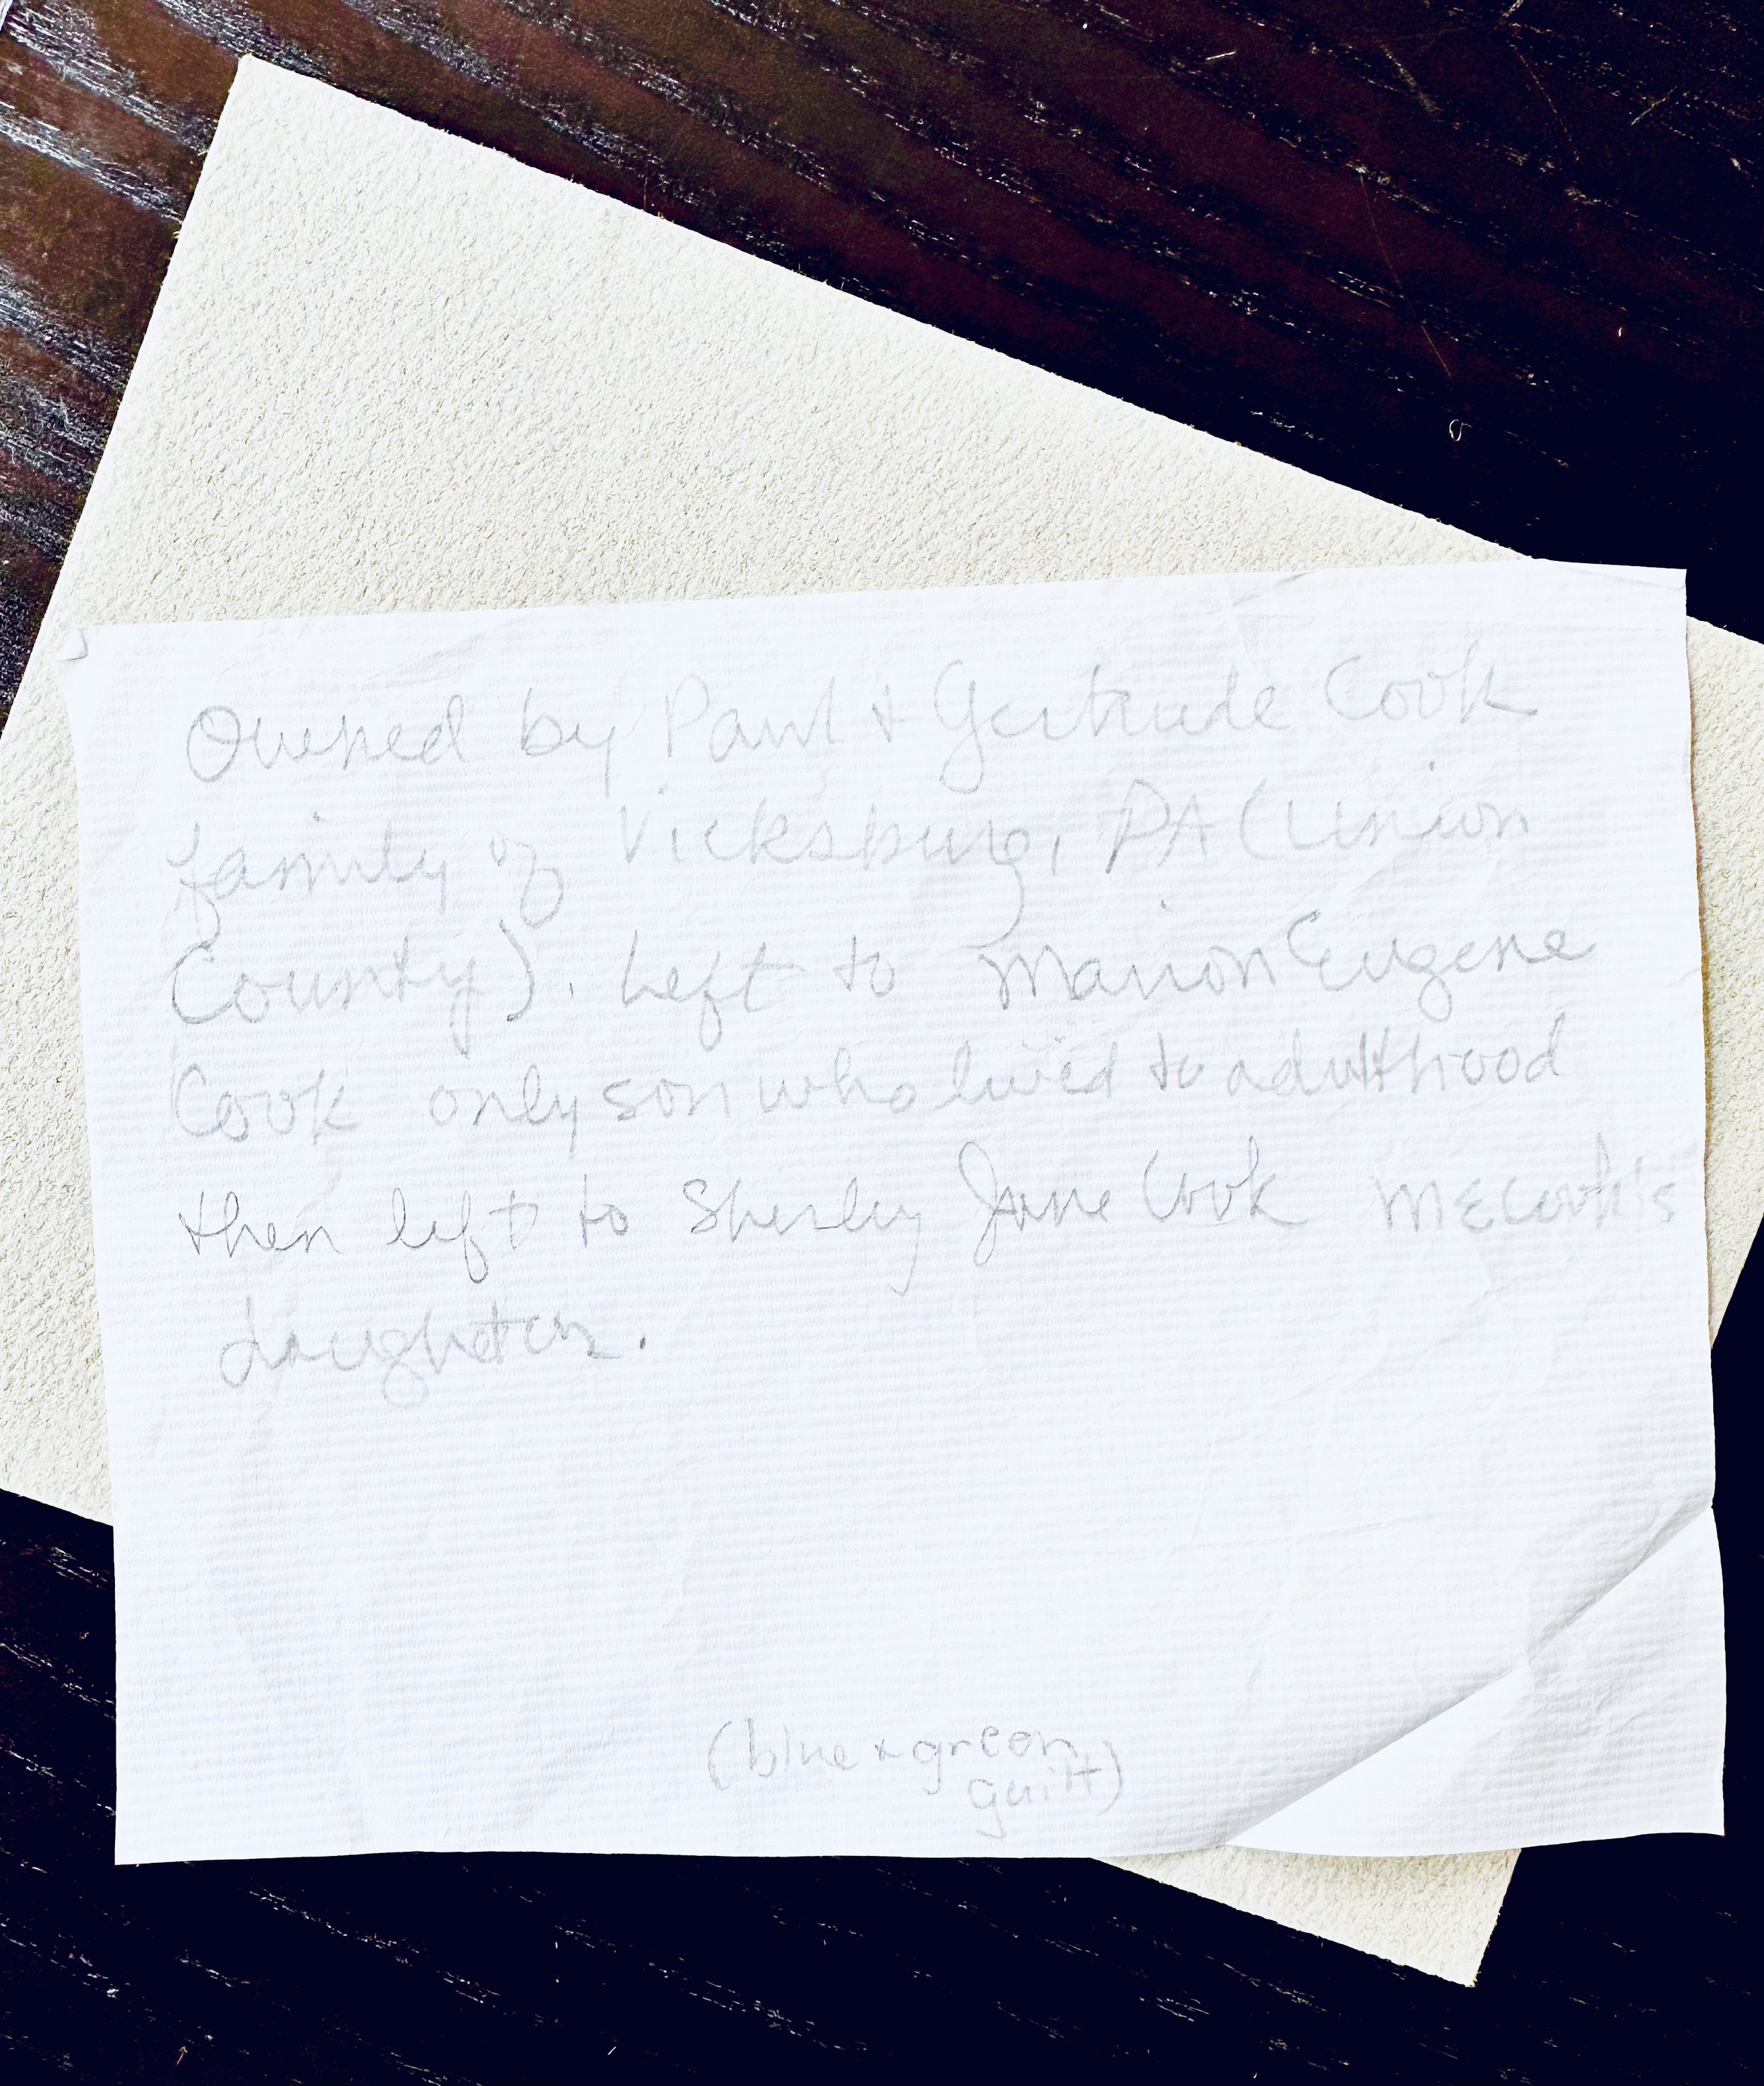 Owned by Paul + Gertrude Cook
family of Vicksburg, PA (Union
County). Left to Marion Eugene
Cook only son who lived to adulthood
then left to Sherley Jane Cook MECook's
daughter.
(blue + green
quilt)